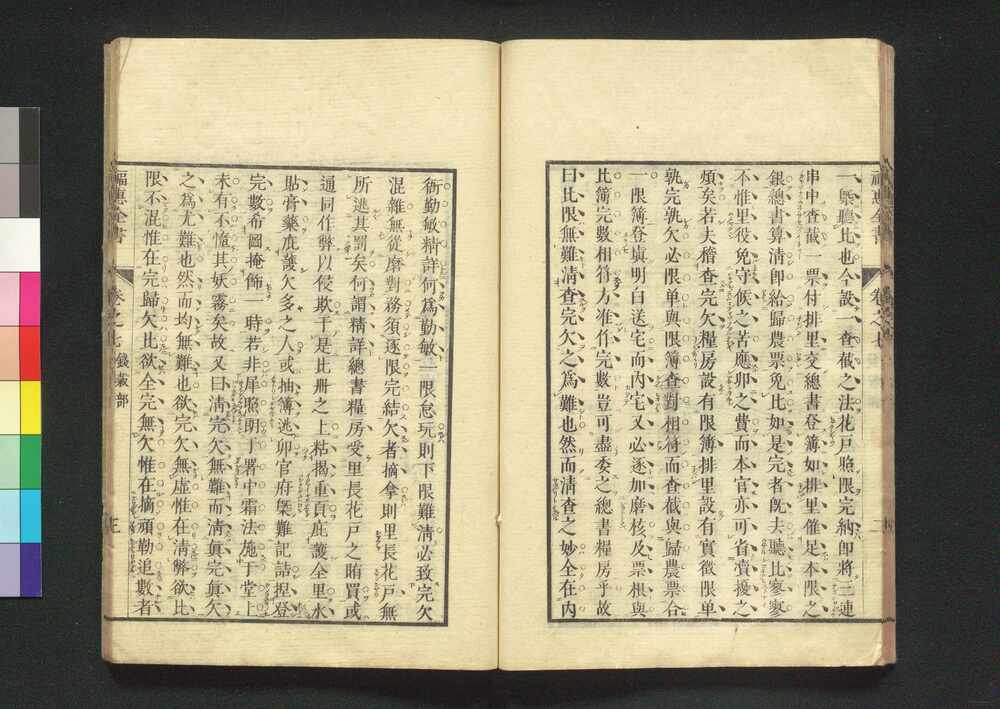 一槩聽比也今設一查截之法花戸照限完納卽將二連
串申查截一票付排里交總書登簿如排里催足本限之
銀總書算淸卽給歸農票免比如是完者旣去聽比寥寥
不惟里役免守候之苦應卯之費而本官亦可省瀆擾之
煩矣若夫稽查完欠糧房設有限簿排里設有實徵限单
孰完孰欠必限单與限簿查對相符而查截與歸農票合
一限簿登塡明白送宅而内宅又必逐加磨核及票根與
比簿完數相符方准作完數豈可盡委之總書糧房乎故
曰比限無難淸查完欠之爲難也然而淸查之妙全在内
福惠全書
卷之七
衙勤敏精詳何爲勤敏一限怠玩則下限難淸必致完欠
混雜無從磨對務須逐限完結欠者摘拿則里長花戸無
所逃其罰矣何謂精詳總書糧房受里長花戸之賄買或
通同作弊以侵欺于是比册之上粘揭重頁庇護全里水
貼膏藥庇護欠多之人或抽簿逃卯官府槩難記詰捏登
完數希圖掩飾一時若非犀照明于署中霜法施于堂上
未有不墮其妖霧矣故又曰淸完欠無難而淸眞完眞欠
之爲尤難也然而均無難也欲完欠無虛惟在淸弊欲比
限不混惟在完歸欠比欲全完無欠惟在摘頑勒追數者
福惠全書
卷之七 錢穀部